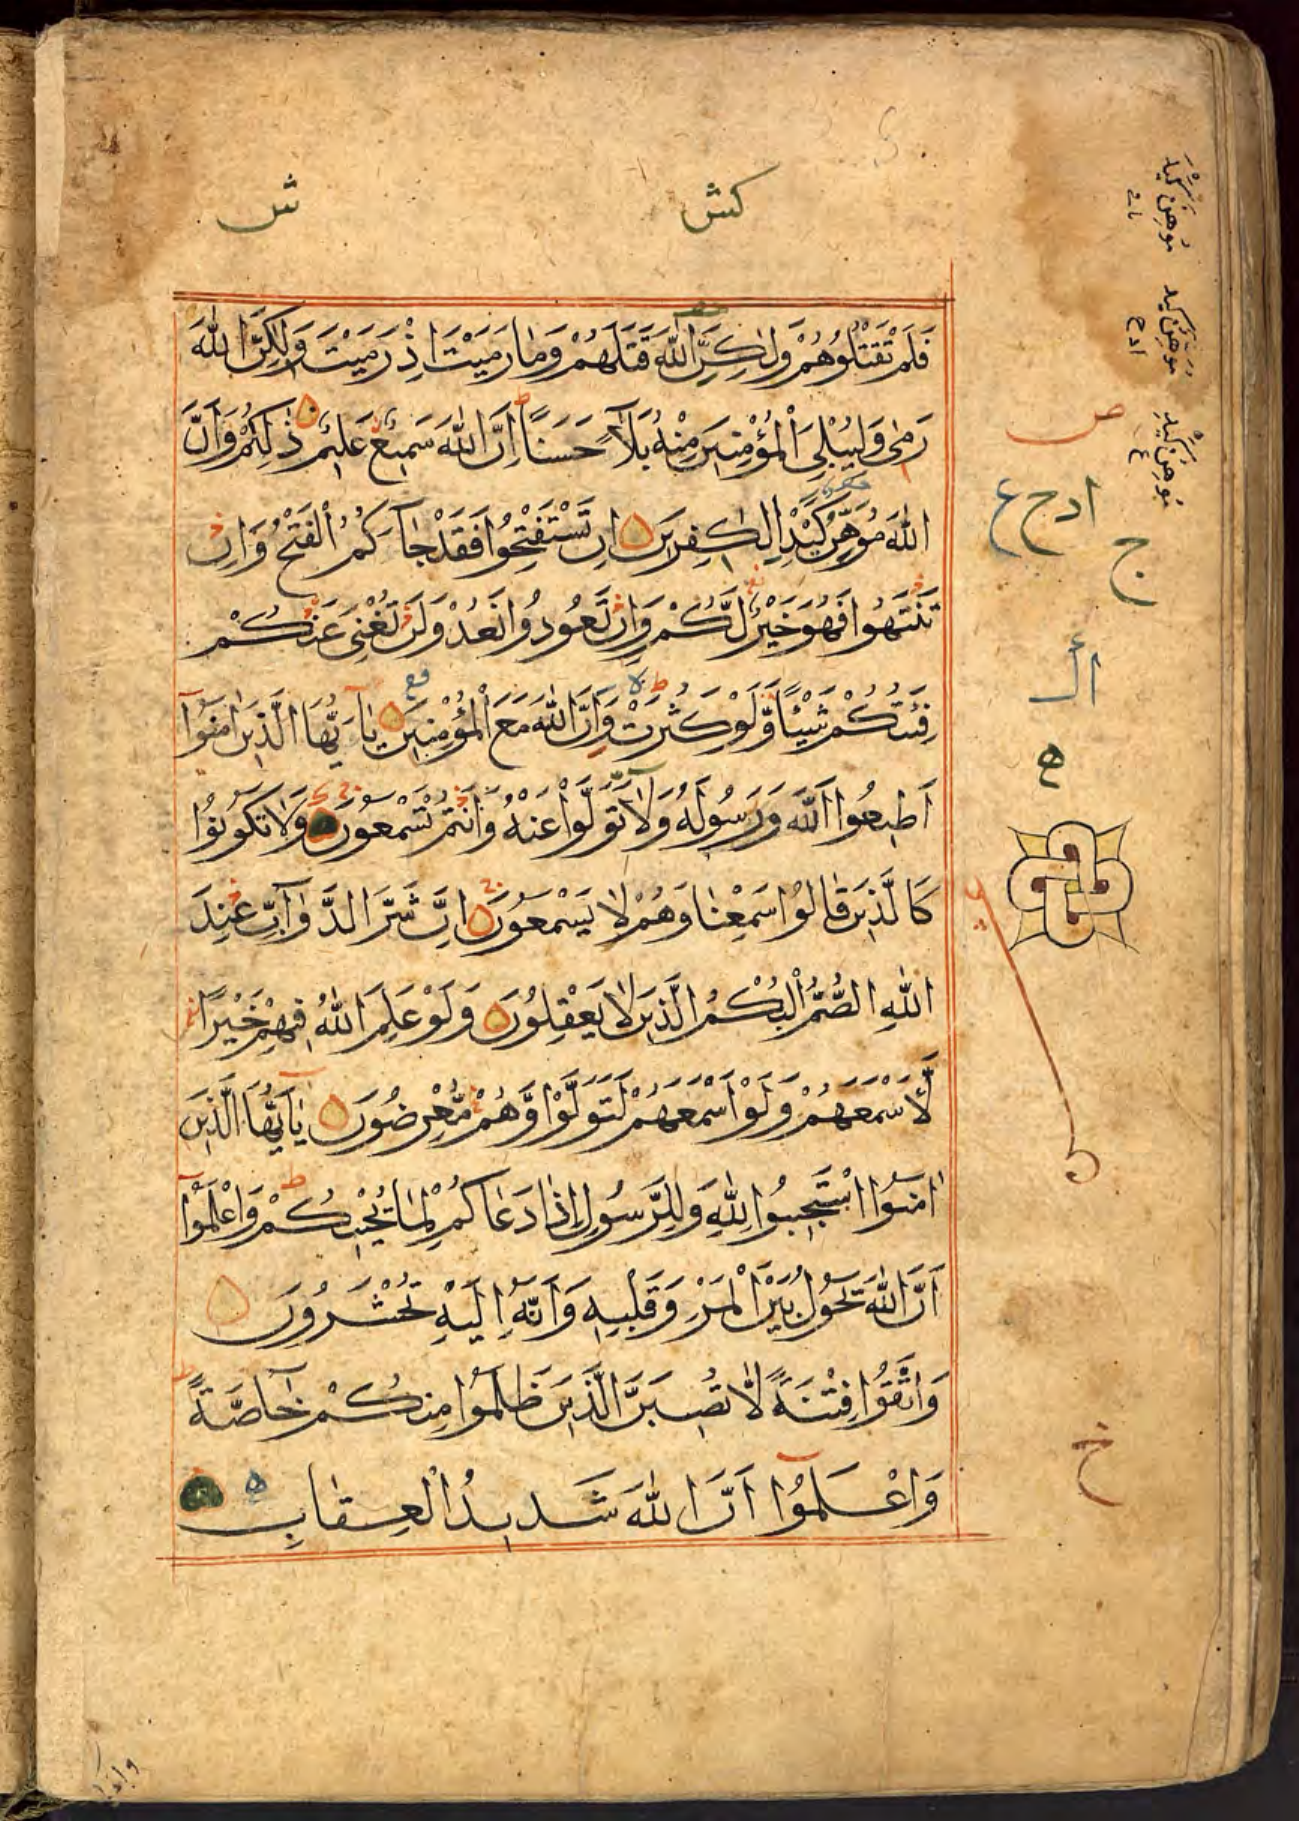 كش ش
فَلَمْ تَقْتُلُوهُمْ وَلٰكِنَّ اللّٰهَ قَتَلَهُمْ وَمَا رَمَيْتَ اِذْ رَمَيْتَ وَلٰكِنَّ اللّٰهَ
رَمٰى وَلِيُبْلِيَ الْمُؤْمِنِينَ مِنْهُ بَلَآءً حَسَنًا اِنَّ اللّٰهَ سَمِيعٌ عَلِيمٌ ذٰلِكُمْ وَاَنَّ
اللّٰهَ مُوَهِّنٌ كَيْدَ الْكٰفِرِينَ اِنْ تَسْتَفْتِحُوا فَقَدْ جَآءَكُمُ الْفَتْحُ وَاِنْ
تَنْتَهُوا فَهُوَ خَيْرٌ لَّكُمْ وَاِنْ تَعُودُوا نَعُدْ وَلَنْ تُغْنِيَ عَنْكُمْ
فِئَتُكُمْ شَيْئًا وَّلَوْ كَثُرَتْ وَاِنَّ اللّٰهَ مَعَ الْمُؤْمِنِينَ يٰٓاَيُّهَا الَّذِينَ اٰمَنُوٓا
اَطِيعُوا اللّٰهَ وَرَسُولَهُ وَلَا تَوَلَّوْا عَنْهُ وَاَنْتُمْ تَسْمَعُونَ وَلَا تَكُونُوا
كَالَّذِينَ قَالُوا سَمِعْنَا وَهُمْ لَا يَسْمَعُونَ اِنَّ شَرَّ الدَّوَآبِّ عِنْدَ
اللّٰهِ الصُّمُّ الْبُكْمُ الَّذِينَ لَا يَعْقِلُونَ وَلَوْ عَلِمَ اللّٰهُ فِيهِمْ خَيْرًا
لَّاَسْمَعَهُمْ وَلَوْ اَسْمَعَهُمْ لَتَوَلَّوْا وَّهُمْ مُّعْرِضُونَ يٰٓاَيُّهَا الَّذِينَ
اٰمَنُوا اسْتَجِيبُوا لِلّٰهِ وَلِلرَّسُولِ اِذَا دَعَاكُمْ لِمَا يُحْيِيكُمْ وَاعْلَمُوٓا
اَنَّ اللّٰهَ يَحُولُ بَيْنَ الْمَرْءِ وَقَلْبِهِ وَاَنَّهُٓ اِلَيْهِ تُحْشَرُونَ
وَاتَّقُوا فِتْنَةً لَّا تُصِيبَنَّ الَّذِينَ ظَلَمُوا مِنْكُمْ خَآصَّةً
وَاعْلَمُوٓا اَنَّ اللّٰهَ شَدِيدُ الْعِقَابِ
مُوهِنٌ كَيْدَ
مُوَهِّنٌ كَيْدَ
ادح
مُوهِنُ كَيْدِ
ع
ص
ادح ع
ج
ه
خ